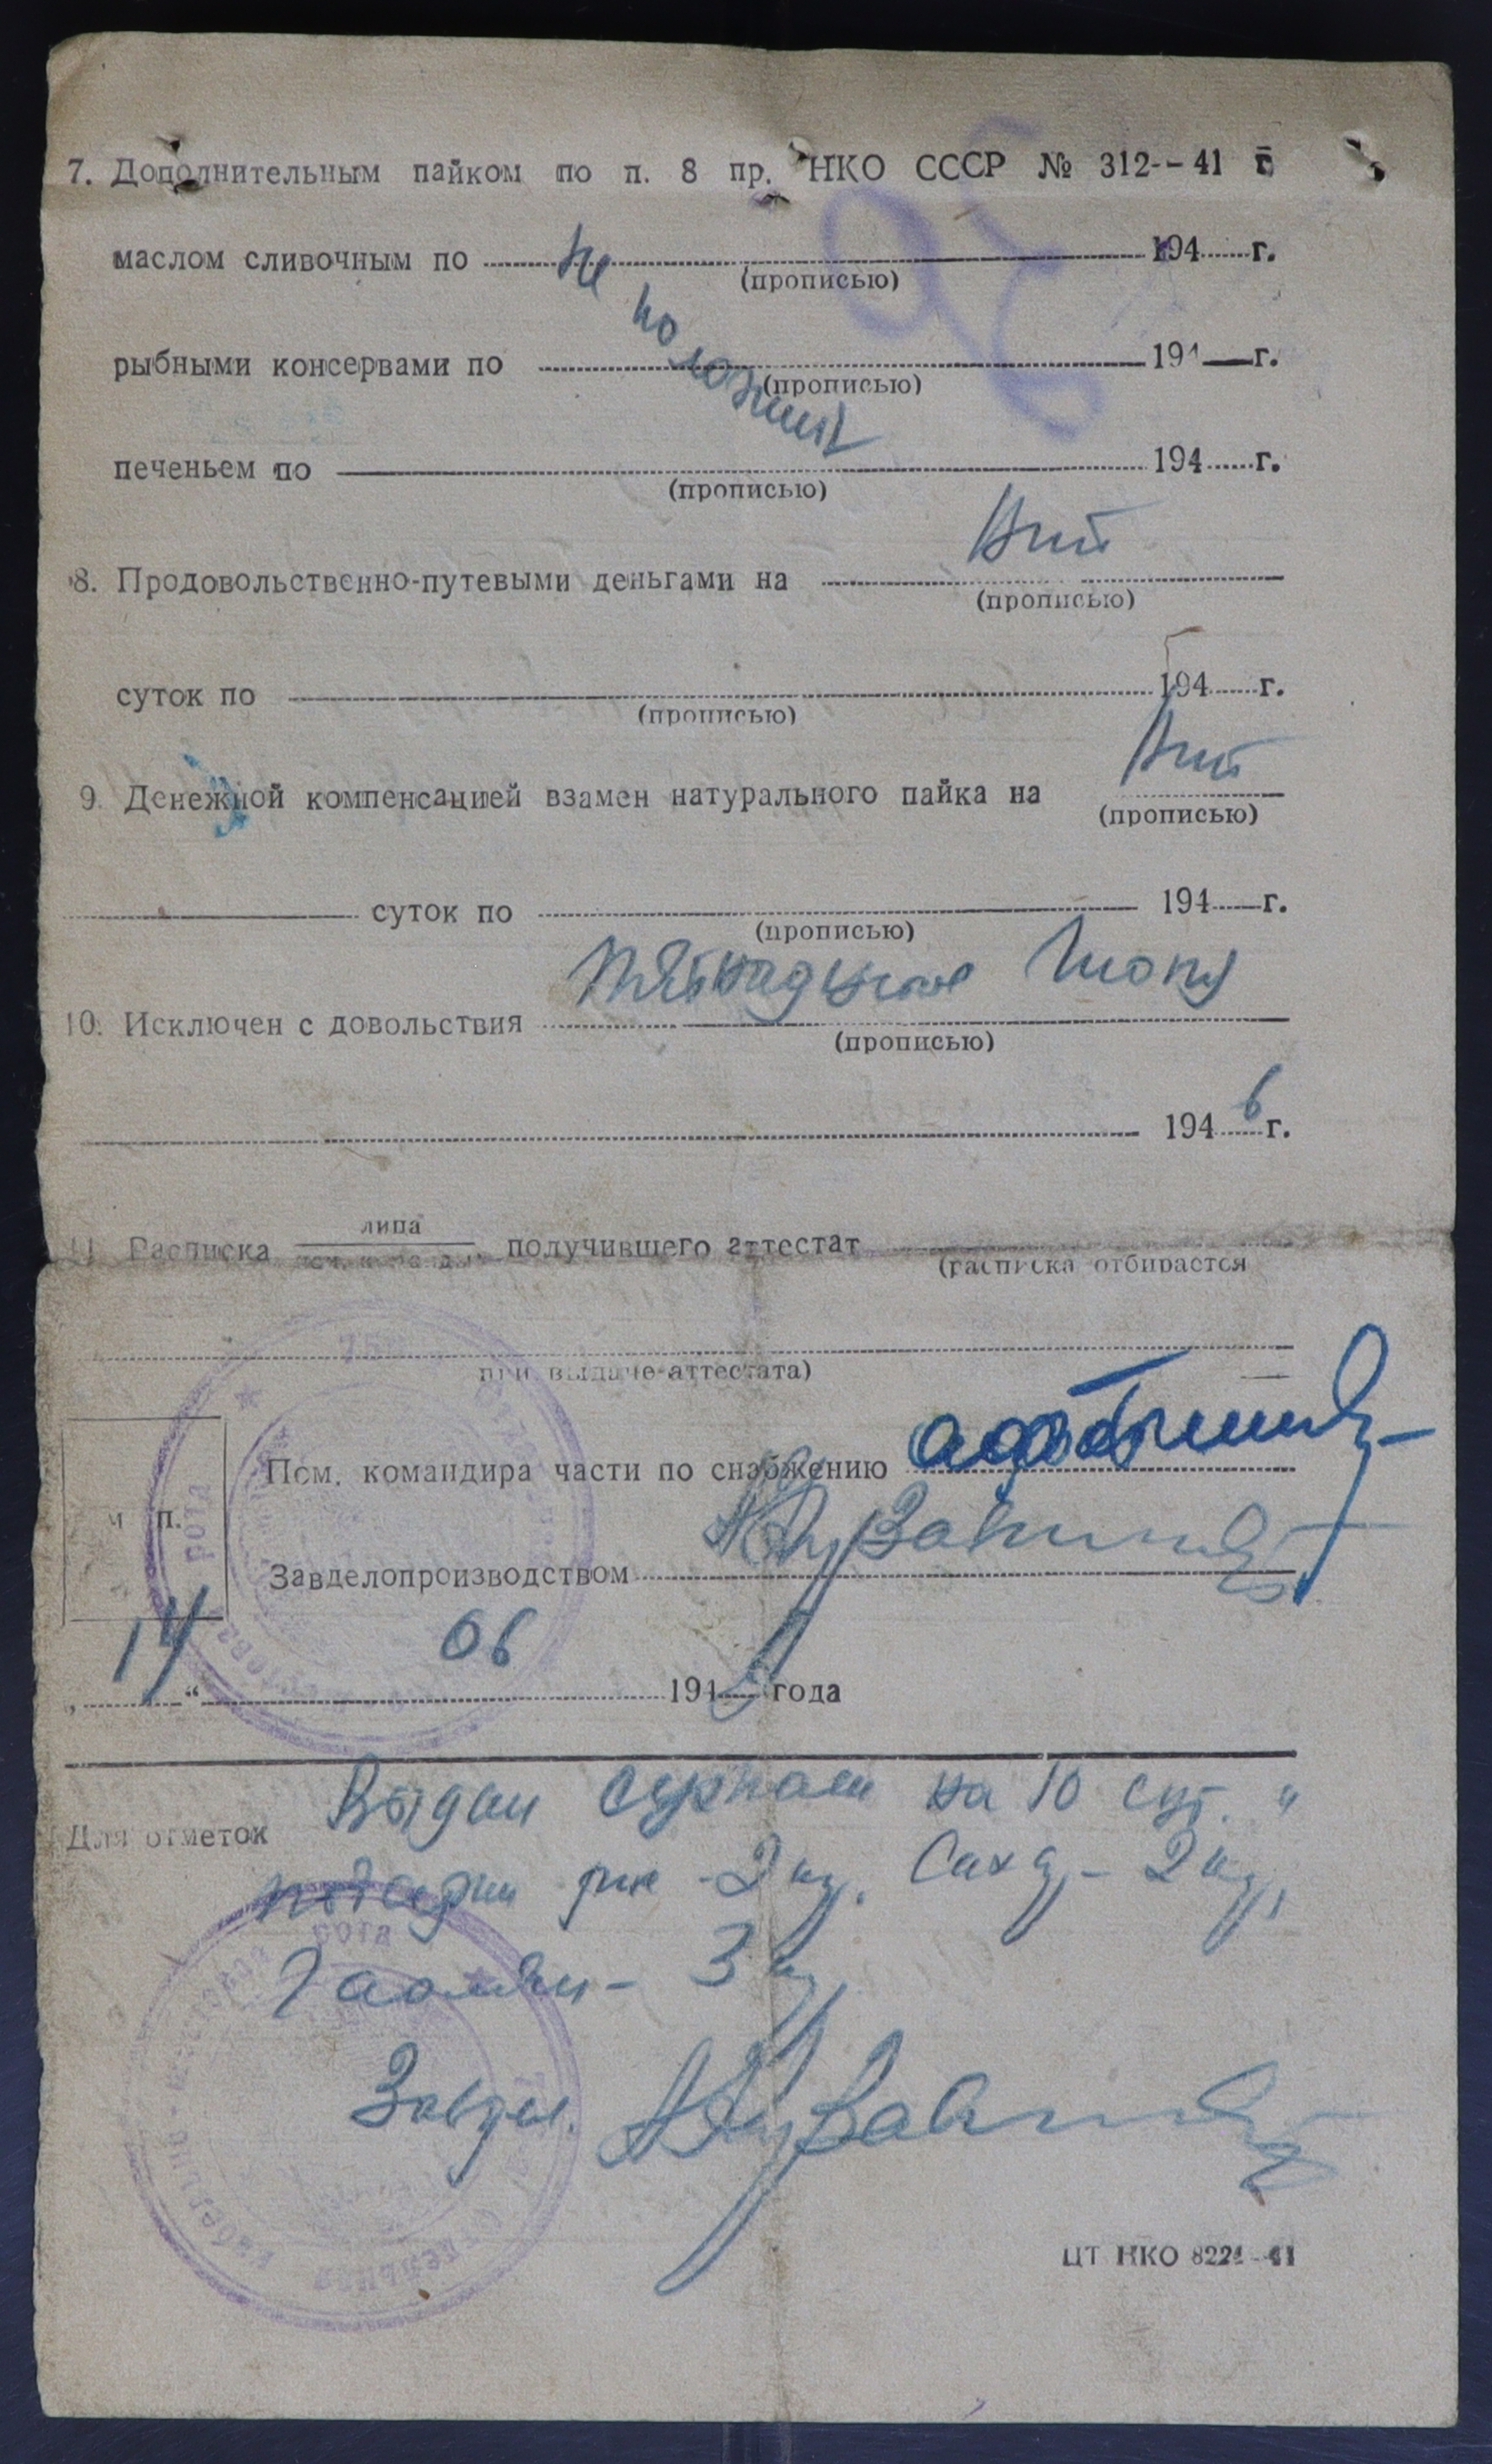 7. Дополнительным пайком по п. 8 пр. НКО СССР № 312--41 г.
маслом сливочным по 194 г.
не
(прописью)
положен
рыбными консервами по 194 г.
(прописью)
печеньем по 194 г.
(прописью)
нет
8. Продовольственно-путевыми деньгами на
(прописью)
суток по 194 г.
(прописью)
нет
9. Денежной компенсацией взамен натурального пайка на
(прописью)
суток по 194 г.
(прописью)
10. Исключен с довольствия пятнадцатое Июня
(прописью)
1946 г.
11. Расписка лица получившего аттестат
(расписка отбирается
при выдаче аттестата)
Пом. командира части по снабжению
м. п.
Завделопроизводством
„14“ 06 1946 года
Выдан сухпаем на 10 сут.
Для отметок
рис - 2 кг. Саха - 2 кг,
3 кг
Завдел.
ЦТ НКО 8224-41